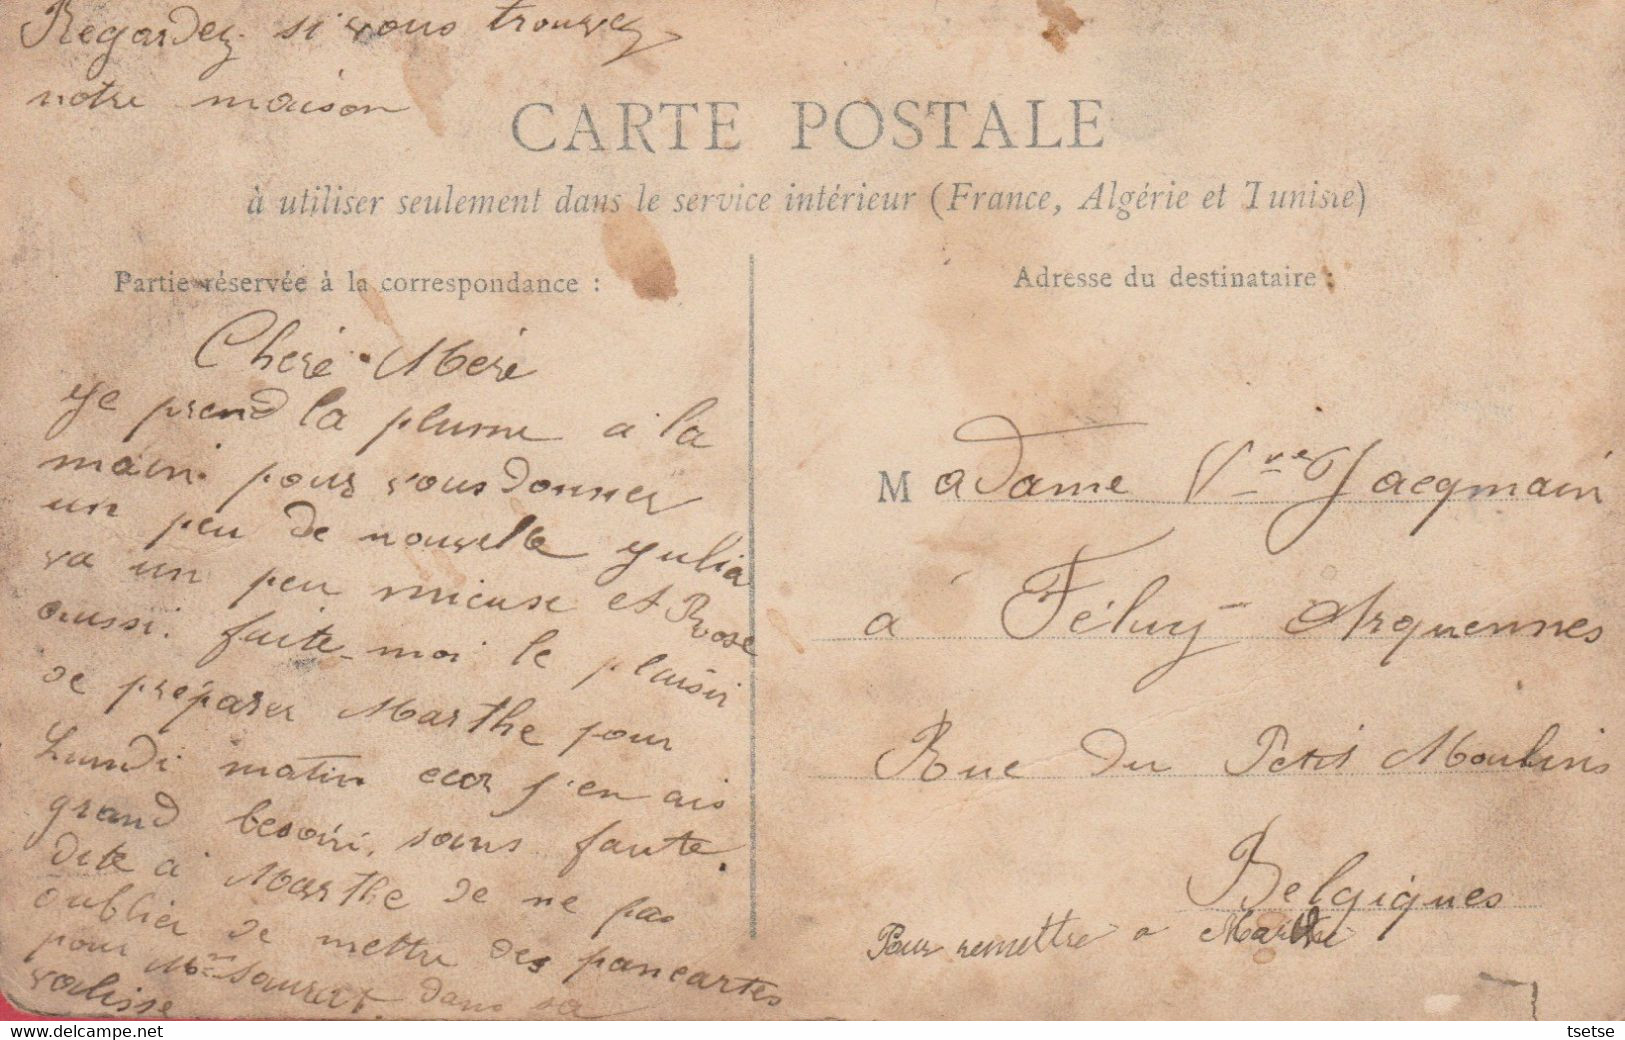 Regardez si vous trouvez
notre maison
CARTE POSTALE
à utiliser seulement dans le service intérieur (France, Algérie et Tunisie)
Partie réservée à la correspondance :
Adresse du destinataire :
Cheré Meré
Je prend la plume a la
main pour vous donner
un peu de nouvelle Julia
va un peu mieuse et Rose
aussi. faite-moi le plaisir
de préparer Marthe pour
Lundi matin car j'en ais
grand besoin, sans faute.
dite à Marthe de ne pas
oublier de mettre des pancartes
pour Mme dans sa
valisse
Madame Vve Jacqmain
a Féluy-Arquennes
Rue du Petit Moulins
Belgiques
Pour remettre a Marthe
tsetse
www.delcampe.net